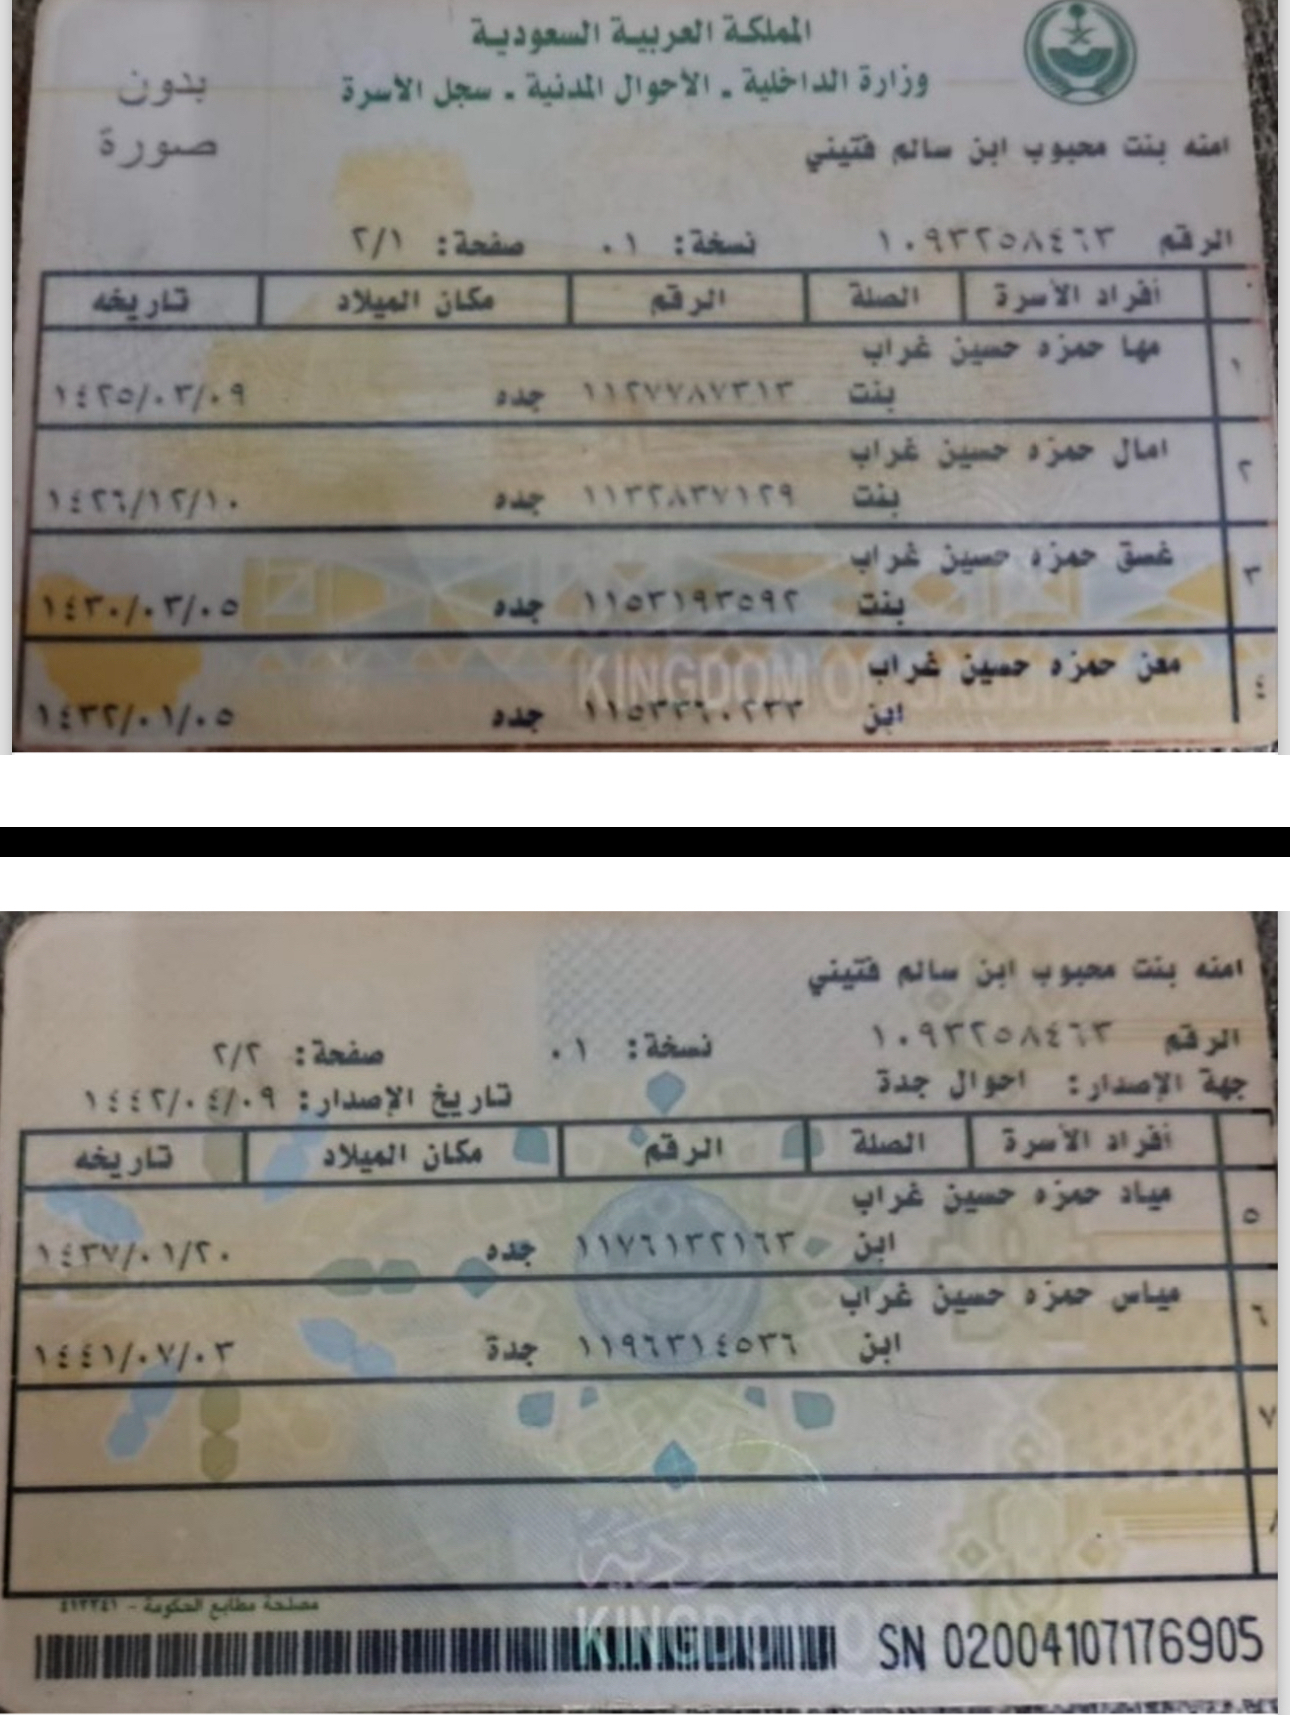 المملكة العربية السعودية
وزارة الداخلية - الأحوال المدنية - سجل الأسرة
بدون
صورة
امنه بنت محبوب ابن سالم فتيني
الرقم ١٠٩٣٢٥٨٤٦٣ نسخة: ٠١ صفحة: ٢/١
أفراد الأسرة الصلة الرقم مكان الميلاد تاريخه
١ مها حمزه حسين غراب
بنت ١١٢٧٧٨٧٣١٣ جده ١٤٢٥/٠٣/٠٩
٢ امال حمزه حسين غراب
بنت ١١٣٢٨٣٧١٢٩ جده ١٤٢٦/١٢/١٠
٣ غسق حمزه حسين غراب
بنت ١١٥٣١٩٣٥٩٢ جده ١٤٣٠/٠٣/٠٥
٤ معن حمزه حسين غراب
ابن جده ١٤٣٢/٠١/٠٥
KINGDOM OF SAUDI
امنه بنت محبوب ابن سالم فتيني
الرقم ١٠٩٣٢٥٨٤٦٣ نسخة: ٠١ صفحة: ٢/٢
جهة الإصدار: احوال جدة تاريخ الإصدار: ١٤٤٢/٠٤/٠٩
أفراد الأسرة الصلة الرقم مكان الميلاد تاريخه
٥ مياد حمزه حسين غراب
ابن ١١٧٦١٣٢١٦٣ جده ١٤٣٧/٠١/٢٠
٦ مياس حمزه حسين غراب
ابن ١١٩٦٣١٤٥٣٦ جدة ١٤٤١/٠٧/٠٣
٧
٨
السعودية
مصلحة مطابع الحكومة -
KINGDOM OF
SN 02004107176905